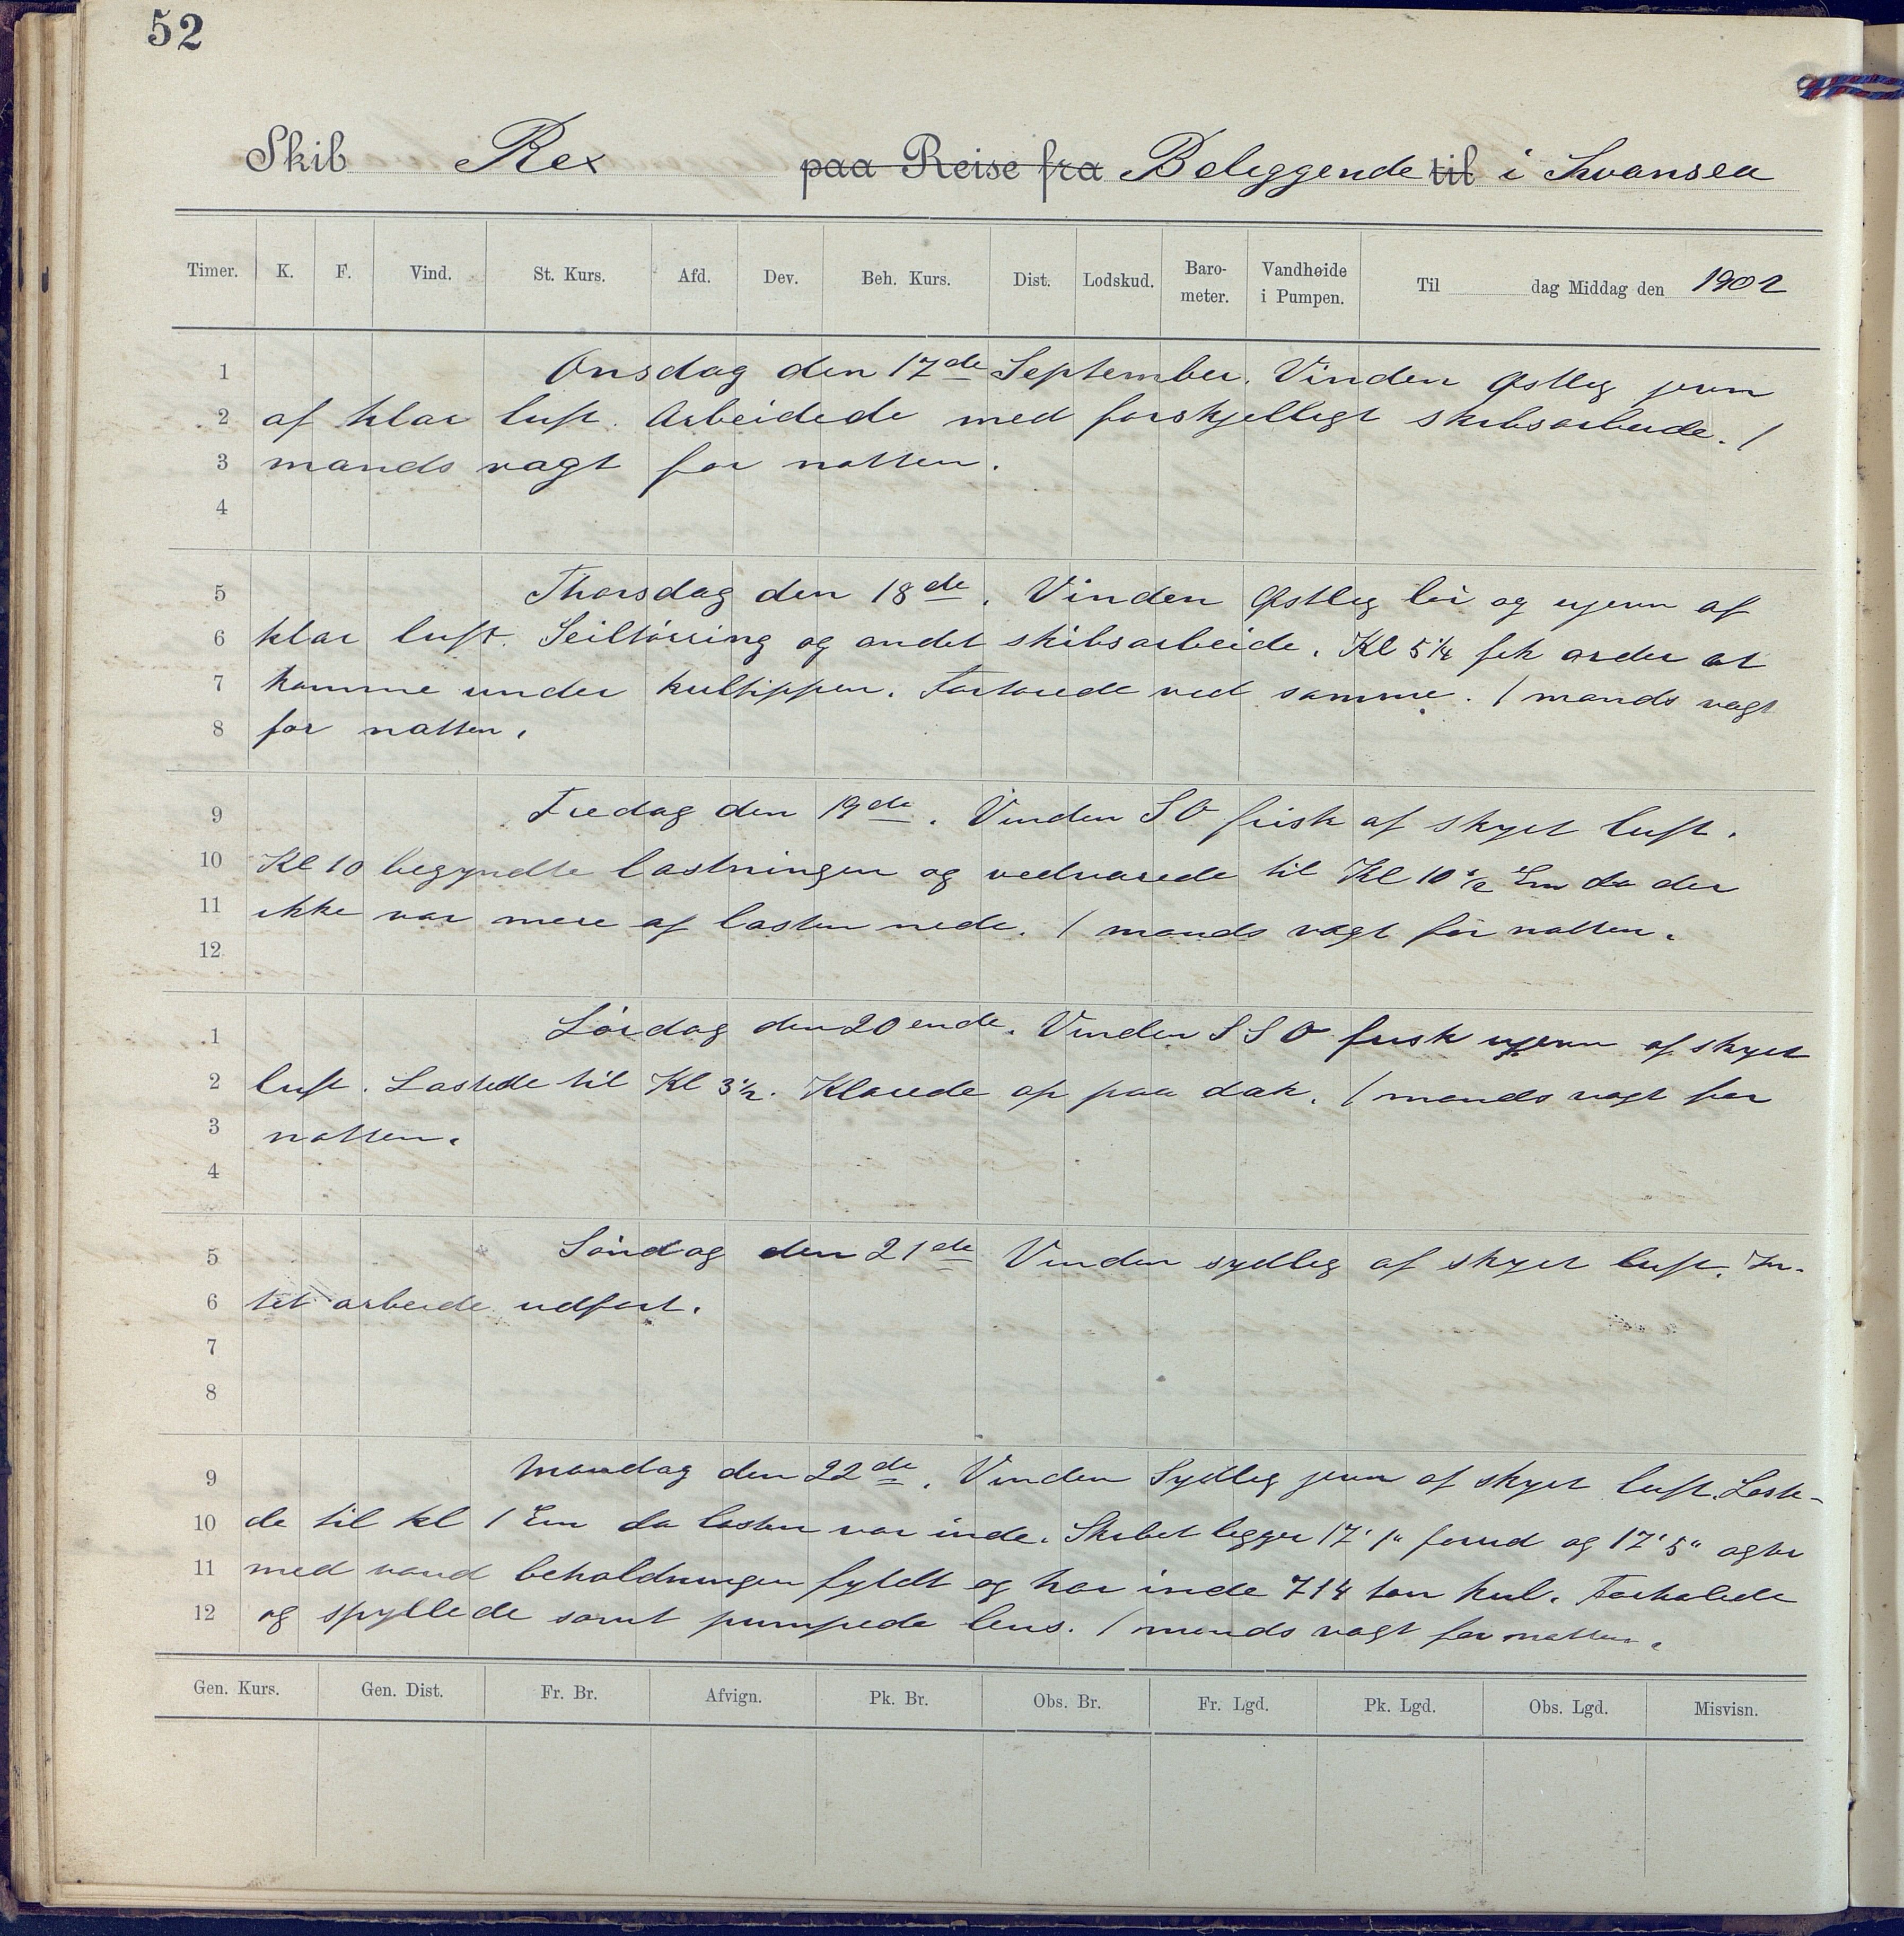 52
Skib Rex paa Reise fra Beliggende til i Swansea
Timer. K. F. Vind. St. Kurs. Afd. Dev. Beh. Kurs. Dist. Lodskud. Baro-meter. Vandhøide i Pumpen. Til dag Middag den 1902
1 Onsdag den 17de September. Vinden Østlig jevn
2 af klar luft. Arbeidede med forskjelligt skibsarbeide. 1
3 mands vagt for natten.
4
5 Thorsdag den 18de. Vinden Østlig lør og ujevn af
6 klar luft. Seiltørring og andet skibsarbeide. Kl 5 1/4 fik order at
7 komme under kultippen. Fortøiede ved samme. 1 mands vagt
8 for natten.
9 Fredag den 19de. Vinden SO frisk af skyet luft.
10 Kl 10 begyndte lastningen og vedvarede til Kl 10 1/2 Em da der
11 ikke var mere af lasten nede. 1 mands vagt for natten.
12
1 Lørdag den 20ende. Vinden SSO frisk ujevn af skyet
2 luft. Lastede til Kl 3 1/2. Klarede op paa dæk. 1 mands vagt for
3 natten.
4
5 Søndag den 21de Vinden sydlig af skyet luft. In-
6 tet arbeide udført.
7
8
9 Mandag den 22de. Vinden Sydlig jevn af skyet luft. Laste-
10 de til kl 1 Em da lasten var inde. Skibet ligger 17' 1" forud og 17' 5" agter
11 med vand beholdningen fyldt og har inde 714 ton kul. Forhalede
12 og spyllede samt pumpede lens. 1 mands vagt for natten.
Gen. Kurs. Gen. Dist. Fr. Br. Afvign. Pk. Br. Obs. Br. Fr. Lgd. Pk. Lgd. Obs. Lgd. Misvisn.